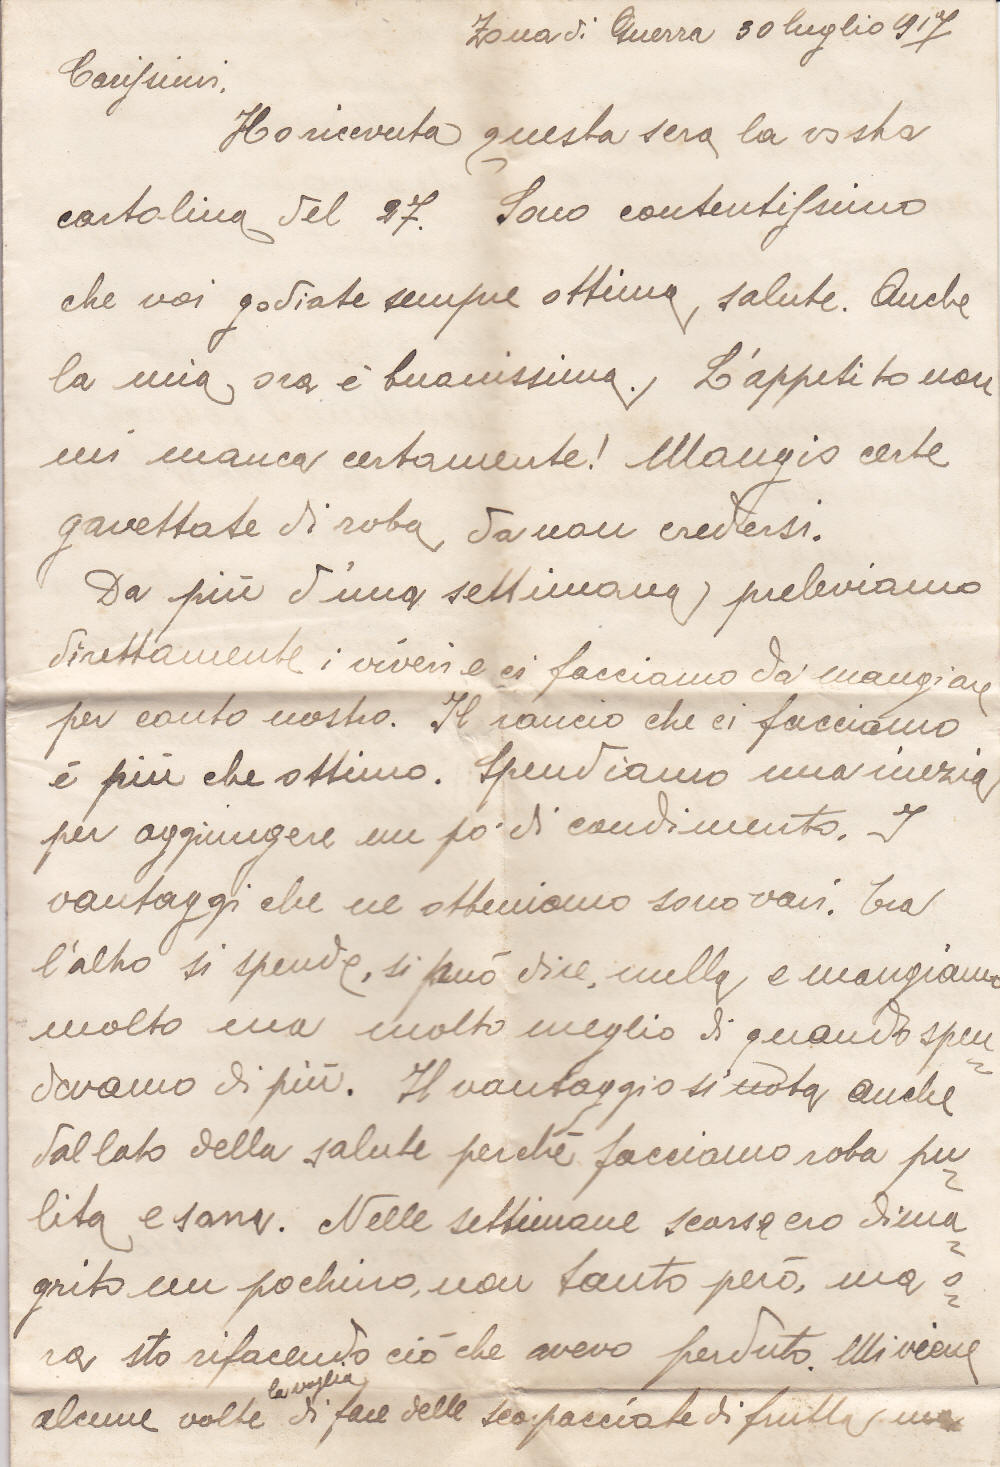 Zona di Guerra 30 luglio 917
Carissimi.
Ho ricevuta questa sera la vostra
cartolina del 27. Sono contentissimo
che voi godiate sempre ottima salute. Anche
la mia ora è buonissima. L'appetito non
mi manca certamente! Mangio certe
gavettate di roba da non credersi.
Da più d'una settimana preleviamo
direttamente i viveri e ci facciamo da mangiare
per conto nostro. Il rancio che ci facciamo
è più che ottimo. Spendiamo una inezia
per aggiungere un po' di condimento. I
vantaggi che ne otteniamo sono vari. Tra
l'altro si spende, si può dire, nulla e mangiamo
molto ma molto meglio di quando spen
devamo di più. Il vantaggio si nota anche
dal lato della salute perchè facciamo roba pu
lita e sana. Nelle settimane scorse ero dima
grito un pochino, non tanto però, ma o
ra sto rifacendo ciò che avevo perduto. Mi viene
alcune volte la voglia di fare delle scorpacciate di frutta ma